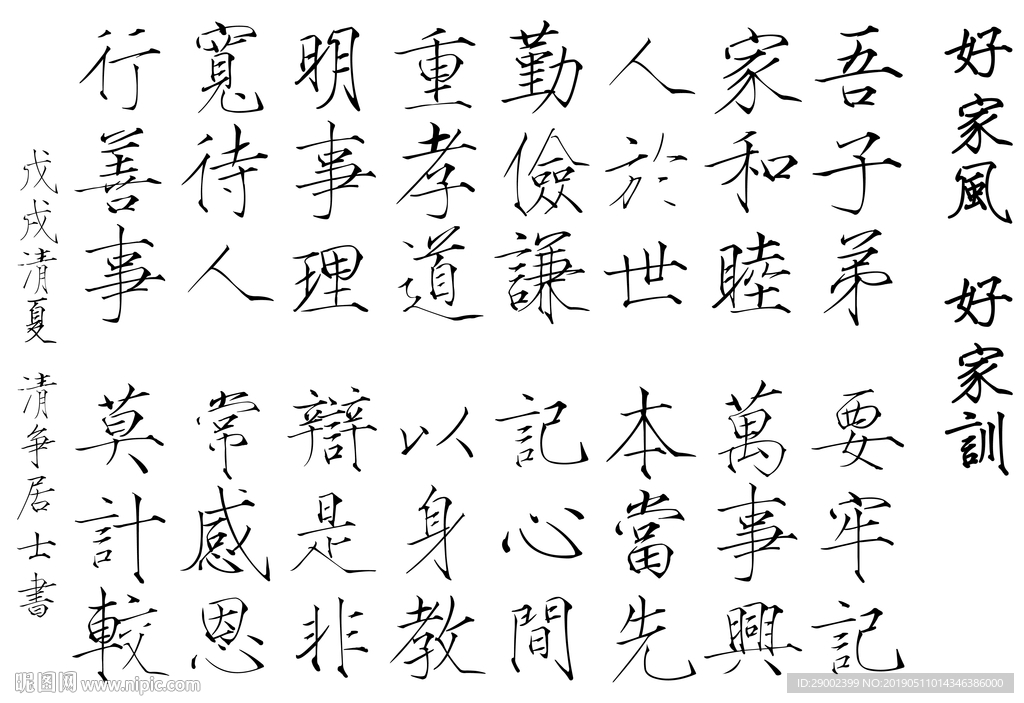 好家風 好家訓
吾子弟 要牢記
家和睦 萬事興
人於世 本當先
勤儉謙 記心間
重孝道 以身教
明事理 辯是非
寬待人 常感恩
行善事 莫計較
戊戌清夏 清争居士書
昵图网 www.nipic.com
ID:29002399 NO:20190511014346386000